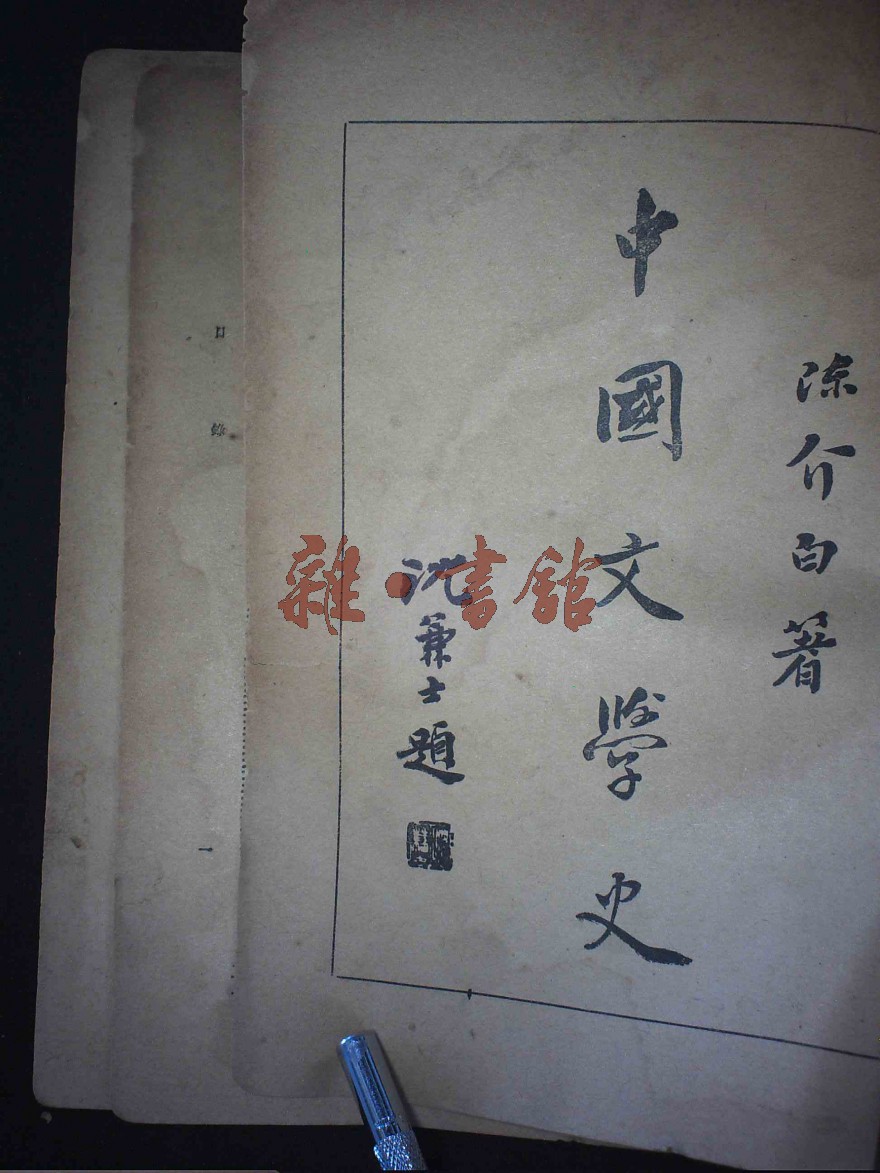 陳介白著
中國文學史
沈兼士題
雜·書館
目錄
一